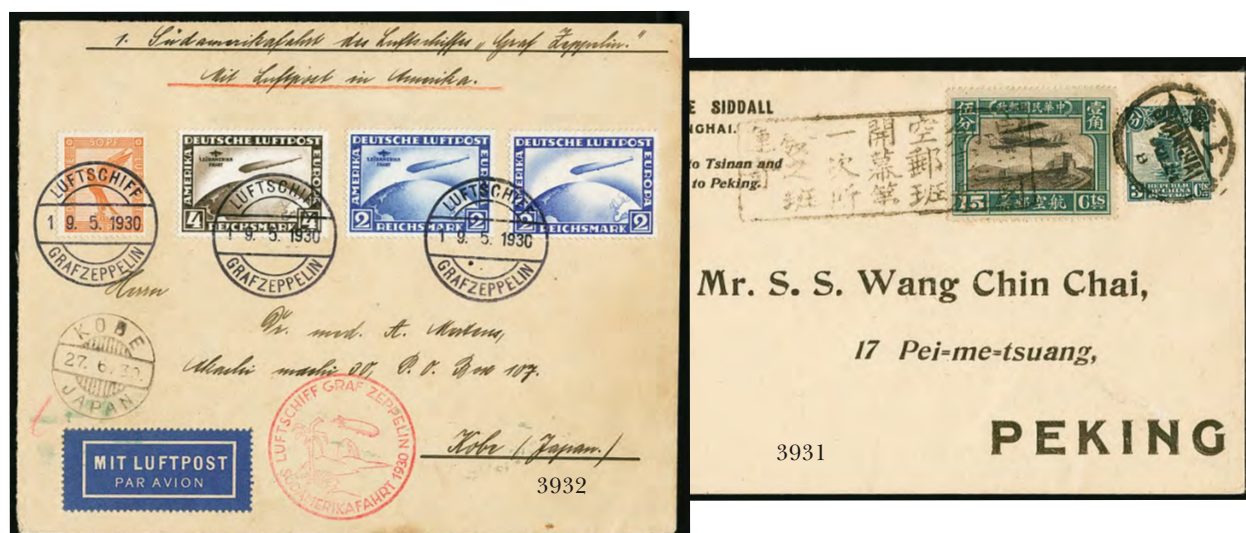 1. Südamerikafahrt des Luftschiffes „Graf Zeppelin."
Mit Luftpost in Amerika.
50 PF
DEUTSCHE LUFTPOST
AMERIKA
EUROPA
1. SÜDAMERIKA FAHRT
4 4
REICHSMARK
DEUTSCHE LUFTPOST
AMERIKA
EUROPA
1. SÜDAMERIKA FAHRT
2 2
REICHSMARK
DEUTSCHE LUFTPOST
AMERIKA
EUROPA
2 2
REICHSMARK
LUFTSCHIFF
19.5.1930
GRAF ZEPPELIN
LUFTSCHIFF
19.5.1930
GRAF ZEPPELIN
LUFTSCHIFF
19.5.1930
GRAF ZEPPELIN
Herrn
Dr. med. A. Mertens,
Akashi machi 30, P.O. Box 107.
Kobe (Japan.)
KOBE
27.6.30.
JAPAN
LUFTSCHIFF GRAF ZEPPELIN
SÜDAMERIKAFAHRT 1930
MIT LUFTPOST
PAR AVION
3932
E SIDDALL
GHAI.
to Tsinan and
to Peking.
空郵班
開幕第
一次所
班
伍分
中華民國郵政
壹角
15 Cts
航空郵票
REPUBLIC OF CHINA
3 Cts
Mr. S. S. Wang Chin Chai,
17 Pei=me=tsuang,
PEKING
3931